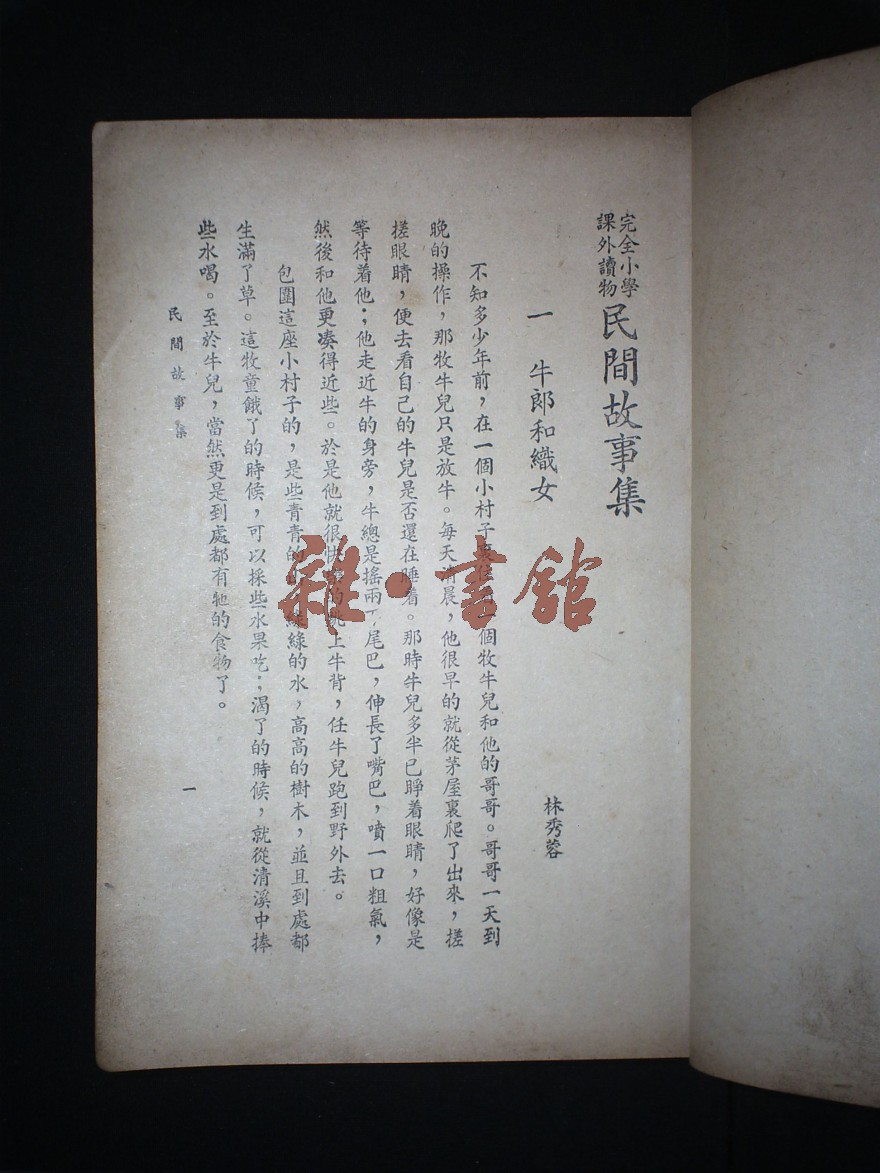 完全小學
課外讀物
民間故事集
一 牛郎和織女
林秀蓉
不知多少年前，在一個小村子裏住着一個牧牛兒和他的哥哥。哥哥一天到
晚的操作，那牧牛兒只是放牛。每天清晨，他很早的就從茅屋裏爬了出來，搓
搓眼睛，便去看自己的牛兒是否還在睡着。那時牛兒多半已睜着眼睛，好像是
等待着他；他走近牛的身旁，牛總是搖兩下尾巴，伸長了嘴巴，噴一口粗氣，
然後和他更凑得近些。於是他就很快的跳上牛背，任牛兒跑到野外去。
包圍這座小村子的，是些青青的綠綠的水，高高的樹木，並且到處都
生滿了草。這牧童餓了的時候，可以採些水果吃；渴了的時候，就從清溪中捧
些水喝。至於牛兒，當然更是到處都有牠的食物了。
民間故事集
一
雜·書館